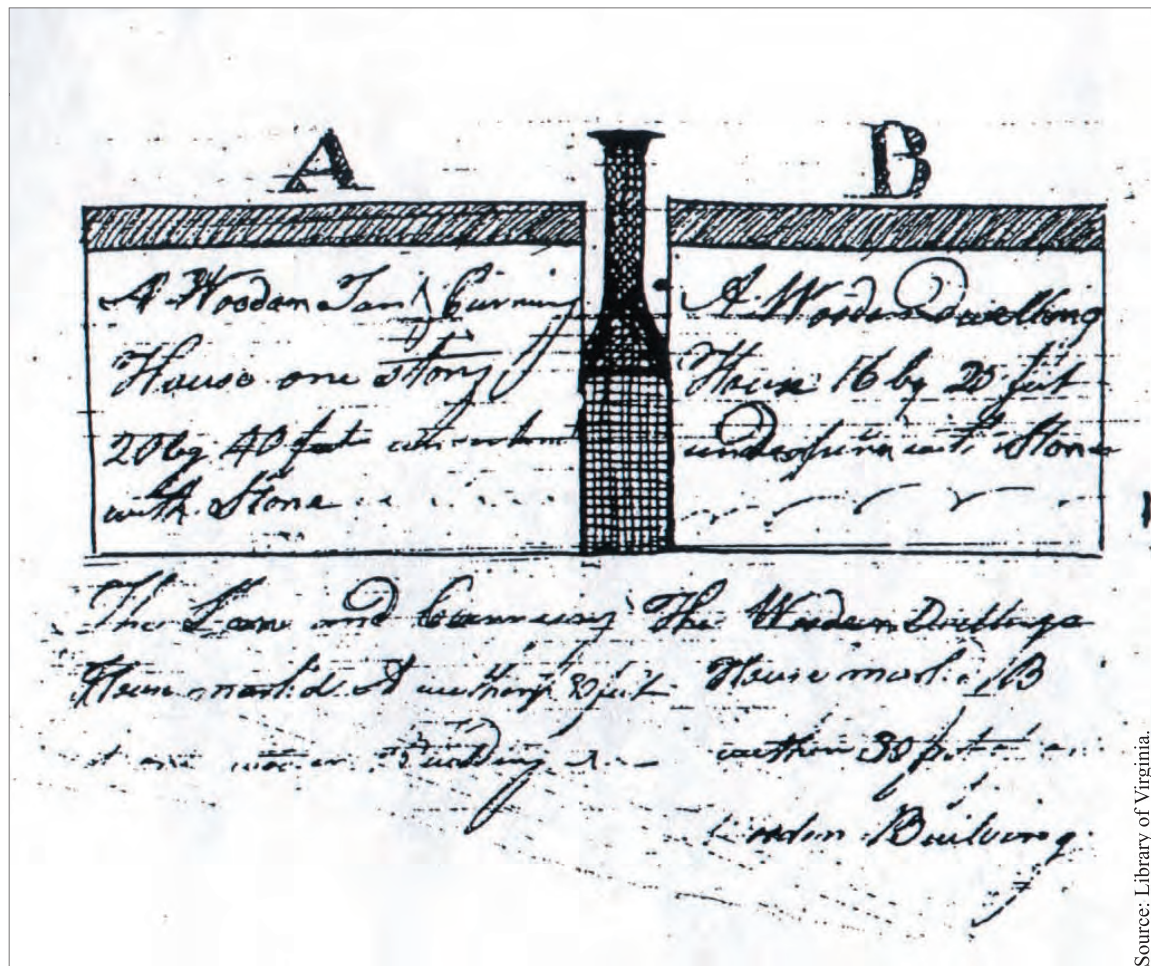 A
B
A Wooden Tan & Curring
House one story
20 by 40 feet
with Stone
A Wooden Dwelling
House 16 by 20 feet
underpinn with Stone
The Tan and
House mark'd A within 30 feet
Building
The Wooden Dwellings
House mark B
within 30 feet
Building
Source: Library of Virginia.